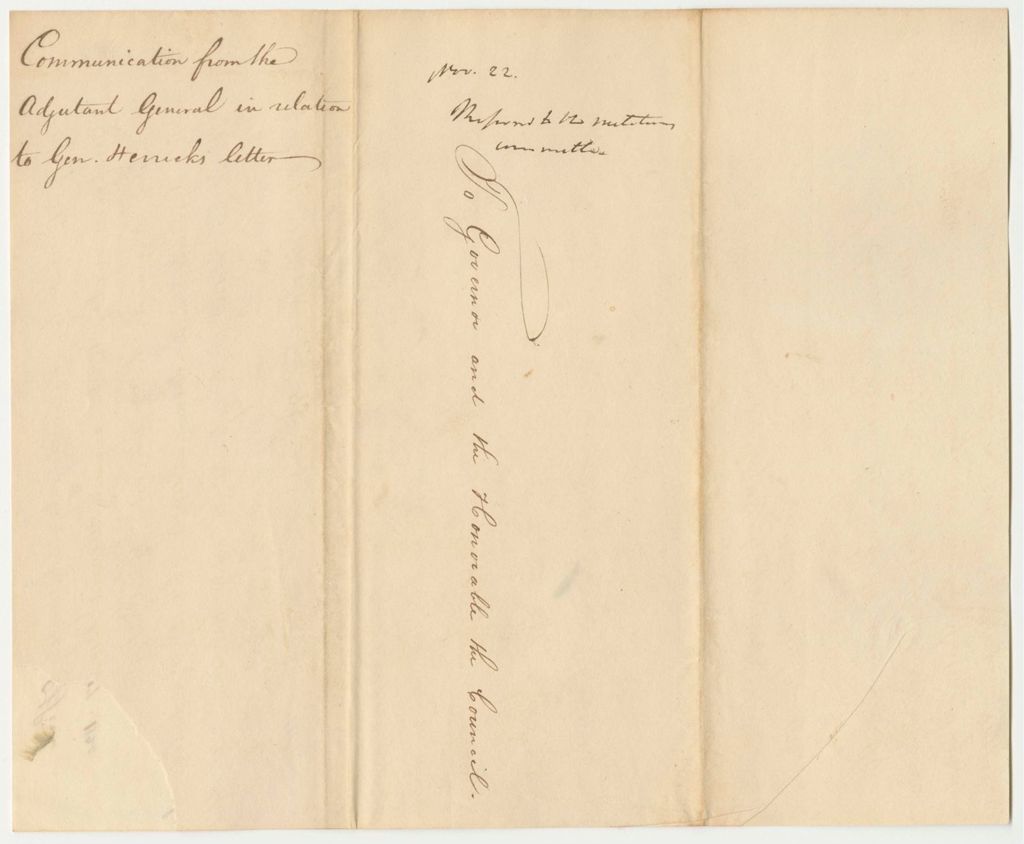 Communication from the
Adjutant General in relation
to Gen. Herricks letter
Nov. 22.
Referred to the
committee
To Governor and the Honorable the Council.